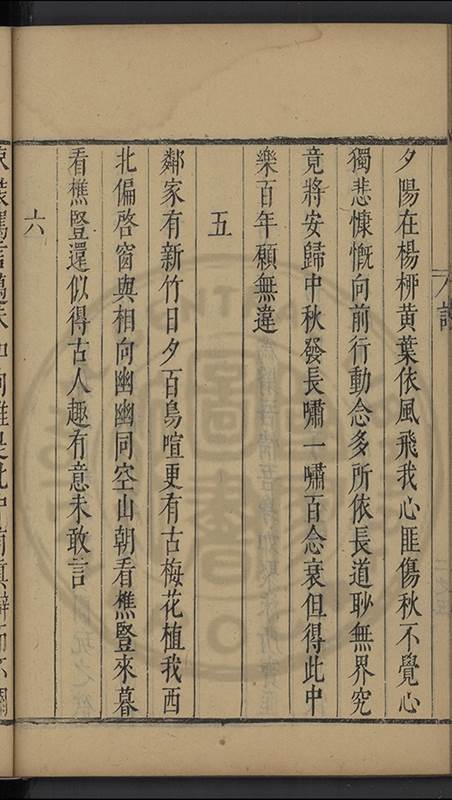 夕陽在楊柳黄葉依風飛我心匪傷秋不覺心
獨悲慷慨向前行動念多所依長道眇無界究
竟將安歸中秋發長嘯一嘯百念衰但得此中
樂百年願無違
五
鄰家有新竹日夕百鳥喧更有古梅花植我西
北偏啓窗與相向幽幽同空山朝看樵豎來暮
看樵豎還似得古人趣有意未敢言
六